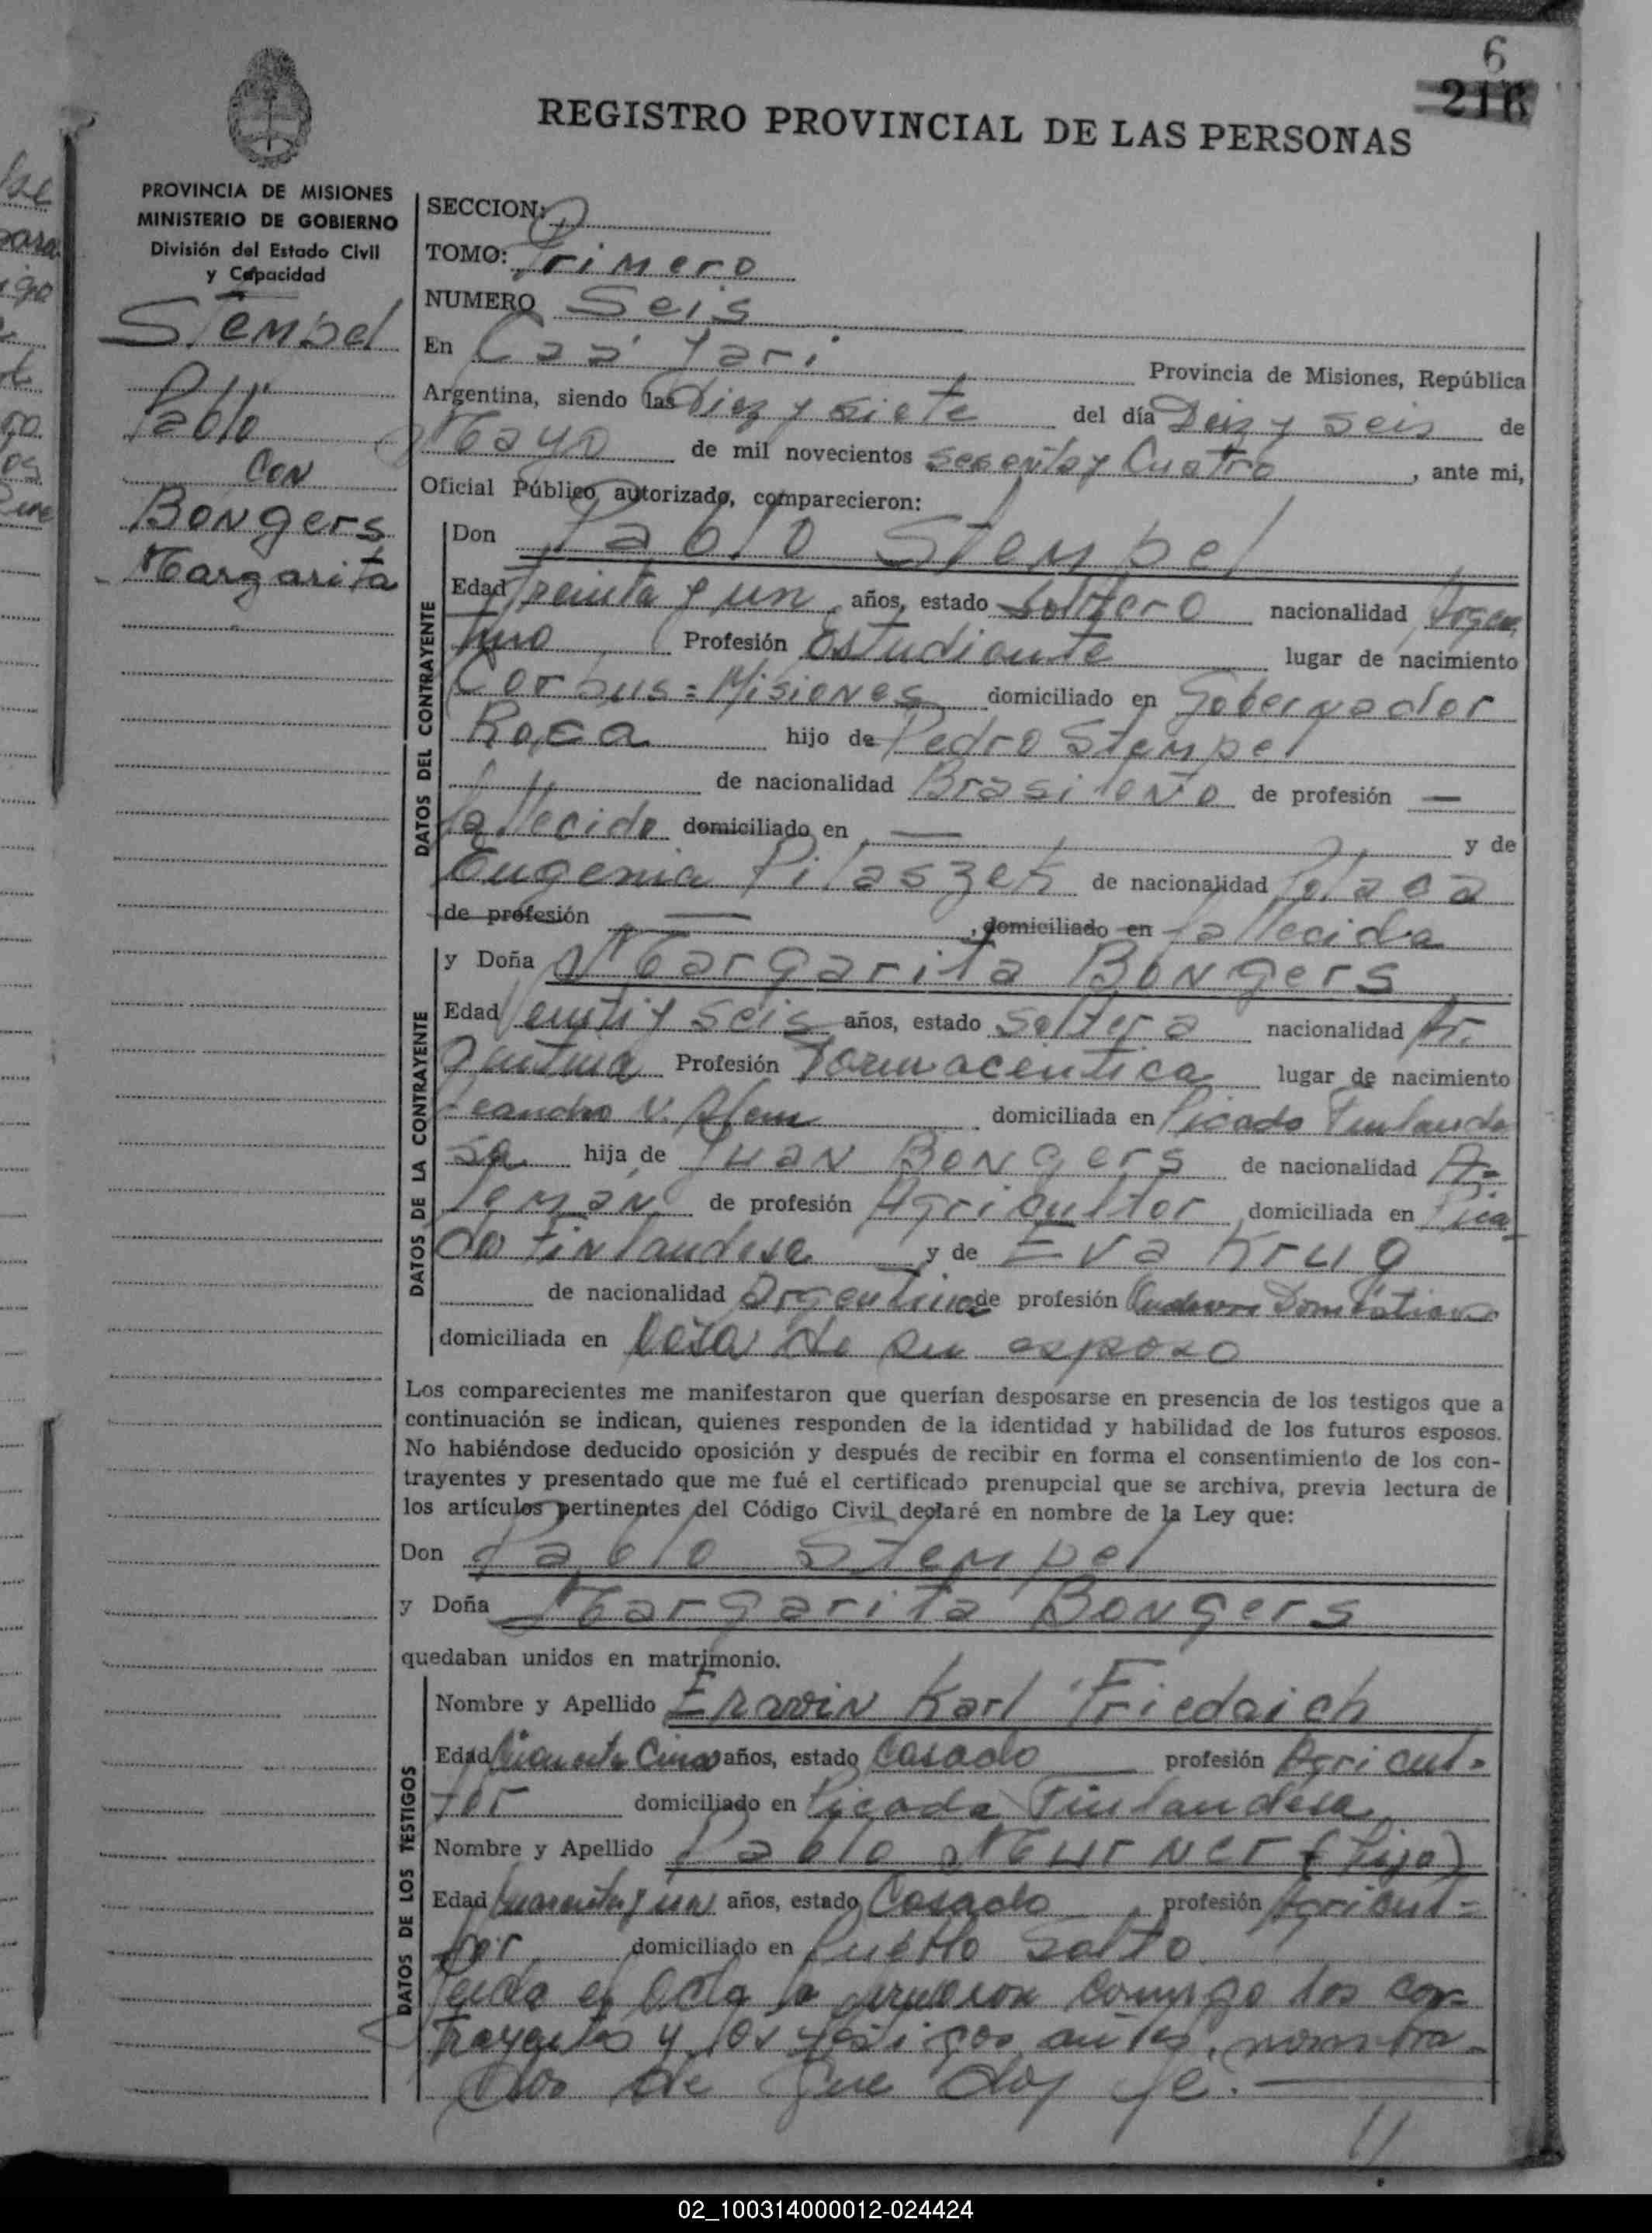 6
216
REGISTRO PROVINCIAL DE LAS PERSONAS
PROVINCIA DE MISIONES
MINISTERIO DE GOBIERNO
División del Estado Civil
y Capacidad
Stempel
Pablo
CON
Bongers
Margarita
SECCION:
TOMO: Primero
NUMERO Seis
En Caá Yari Provincia de Misiones, República
Argentina, siendo las Diez y siete del día Deiz y seis de
Mayo de mil novecientos sesenta y Cuatro, ante mi,
Oficial Público autorizado, comparecieron:
DATOS DEL CONTRAYENTE
Don Pablo Stempel
Edad Treinta y un años, estado Soltero nacionalidad Argen
tino Profesión Estudiante lugar de nacimiento
Corpus = Misiones domiciliado en Gobernador
Roca hijo de Pedro Stempel
de nacionalidad Brasileño de profesión —
fallecido domiciliado en — y de
Eugenia Pilaszek de nacionalidad Polaca
de profesión — , domiciliado en fallecida
DATOS DE LA CONTRAYENTE
y Doña Margarita Bongers
Edad Veinti y seis años, estado Soltera nacionalidad Ar.
gentina Profesión Farmaceutica lugar de nacimiento
Leandro N. Alem domiciliada en Picada Finlande
sa hija de Juan Bongers de nacionalidad A=
lemán de profesión Agricultor domiciliada en Pica
da Finlandesa y de Eva Krug
de nacionalidad Argentina de profesión Domésticos
domiciliada en Casa de su esposo
Los comparecientes me manifestaron que querían desposarse en presencia de los testigos que a
continuación se indican, quienes responden de la identidad y habilidad de los futuros esposos.
No habiéndose deducido oposición y después de recibir en forma el consentimiento de los con-
trayentes y presentado que me fué el certificado prenupcial que se archiva, previa lectura de
los artículos pertinentes del Código Civil declaré en nombre de la Ley que:
Don Pablo Stempel
y Doña Margarita Bongers
quedaban unidos en matrimonio.
DATOS DE LOS TESTIGOS
Nombre y Apellido Erwin Karl Friedrich
Edad Cinco años, estado Casado profesión Agricul=
tor domiciliado en Picada Finlandesa
Nombre y Apellido Pablo Neurner (hijo)
Edad Cuarenta y un años, estado Casado profesión Agricul=
tor domiciliado en Puerto Salto
Leida el acta la firmaron conmigo los con=
trayentes y los testigos antes nombra-
dos de que doy fe. —
02_100314000012-024424